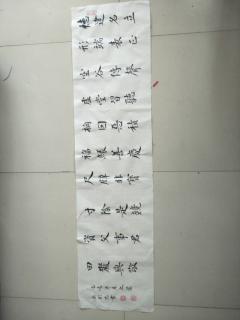 德建名立
形端表正
空谷傳聲
虛堂習聽
禍因惡積
福緣善慶
尺璧非寶
寸陰是競
資父事君
曰嚴與敬